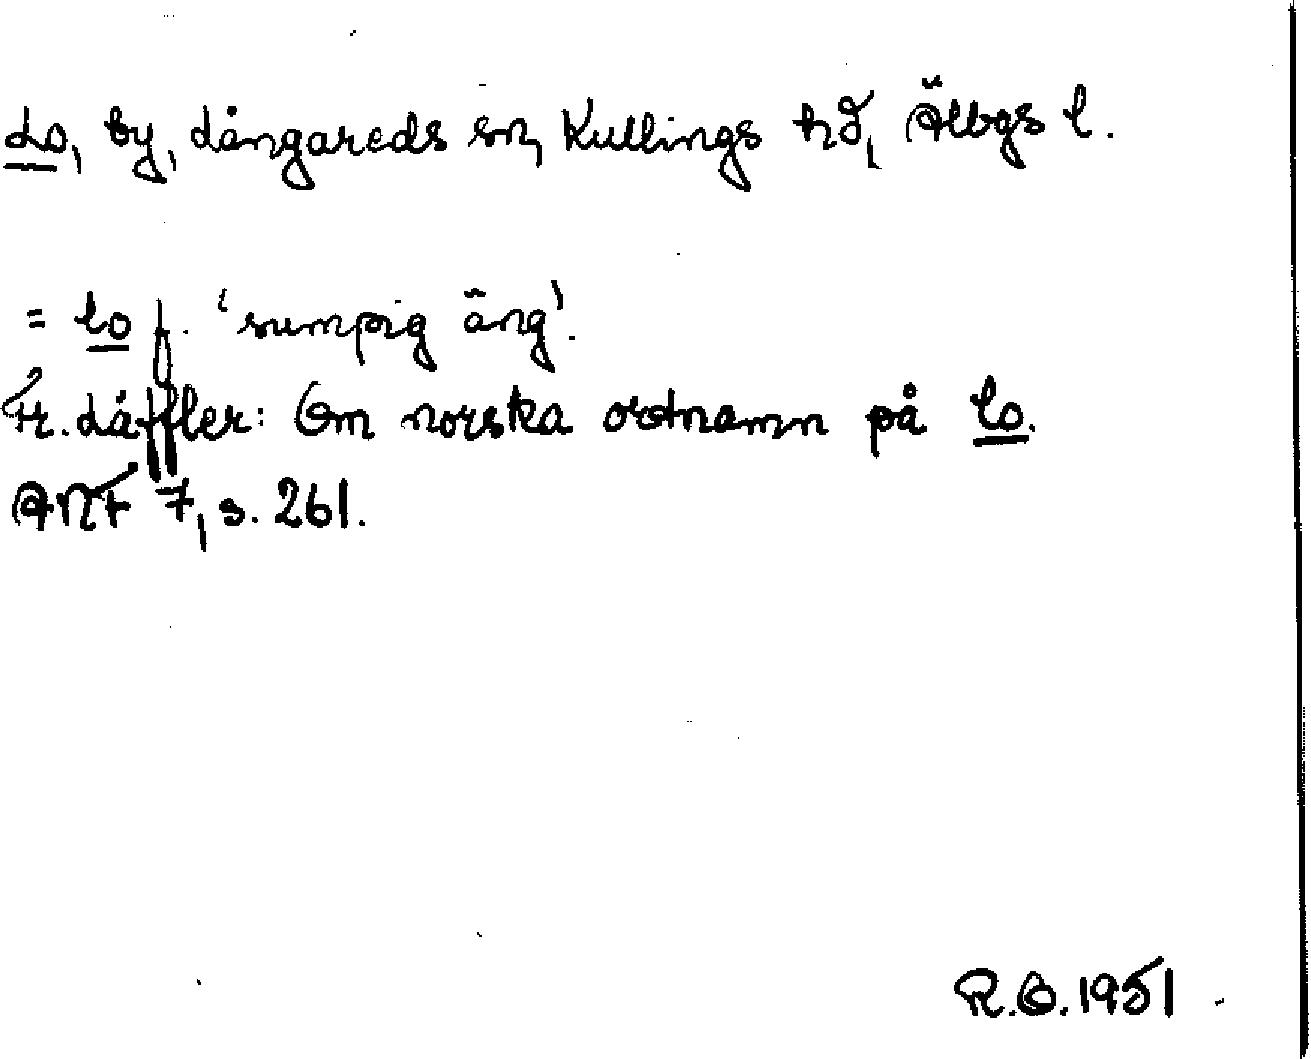 Lo, by, Långareds sn, Kullings hd, Älvbgs l.
= lo f. 'sumpig äng'.
Fr. Läffler: Om norska ortnamn på lo.
ANF 7, s. 261.
R.O. 1951